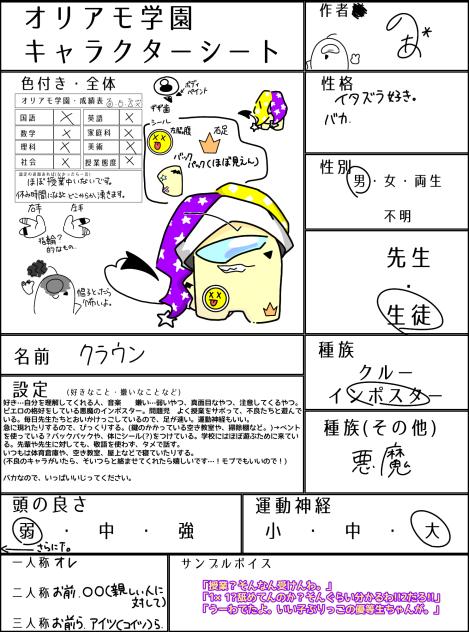 オリアモ学園
キャラクターシート
作者
のあ*
色付き・全体
オリアモ学園・成績表
国語 × 英語 ×
数学 × 家庭科 ×
理科 × 美術 ×
社会 × 授業態度 ×
ほぼ授業中いないです。
休み時間になるとどこからか湧きます。
右手 左手
指輪?
的なもの
怒るとだったら
怖いよ。
ボディ
ペイント
ギザ歯
シール
右足
バック
パック(ほぼ見えん)
性格
イタズラ好き。
バカ
性別
男・女・両生
不明
先生
・
生徒
名前 クラウン
種族
クルー
インポスター
種族(その他)
悪魔
設定 (好きなこと・嫌いなことなど)
好き…自分を理解してくれる人、音楽 嫌い…弱いやつ、真面目なやつ、注意してくるやつ。
ピエロの格好をしている悪魔のインポスター。問題児 よく授業をサボって、不良たちと遊んで
いる。毎日先生たちとおいかけっこしているので、足が速い。運動神経もいい。
急に現れたりするので、びっくりする。(鍵のかかっている空き教室や、掃除棚など。)→ベント
を使っている?バックパックや、体にシール(?)をつけている。学校にはほぼ遊ぶために来てい
る。先輩や先生に対しても、敬語を使わず、タメで話す。
いつもは体育倉庫や、空き教室、屋上などで寝ていたりする。
(不良のキャラがいたら、そいつらと絡ませてくれたら嬉しいです…!モブでもいいので!)
バカなので、いっぱいいじってください。
頭の良さ
弱・中・強
さらに下。
運動神経
小・中・大
一人称 オレ
二人称 お前、〇〇(親しい人に
対して)
三人称 お前ら、アイツ(コイツ)ら
サンプルボイス
「授業?そんなん受けんわ。」
「1×1?舐めてんのか?そんぐらい分かるわ!!2だろ!!」
「うーわでたよ。いい子ぶりっこの優等生ちゃんが。」